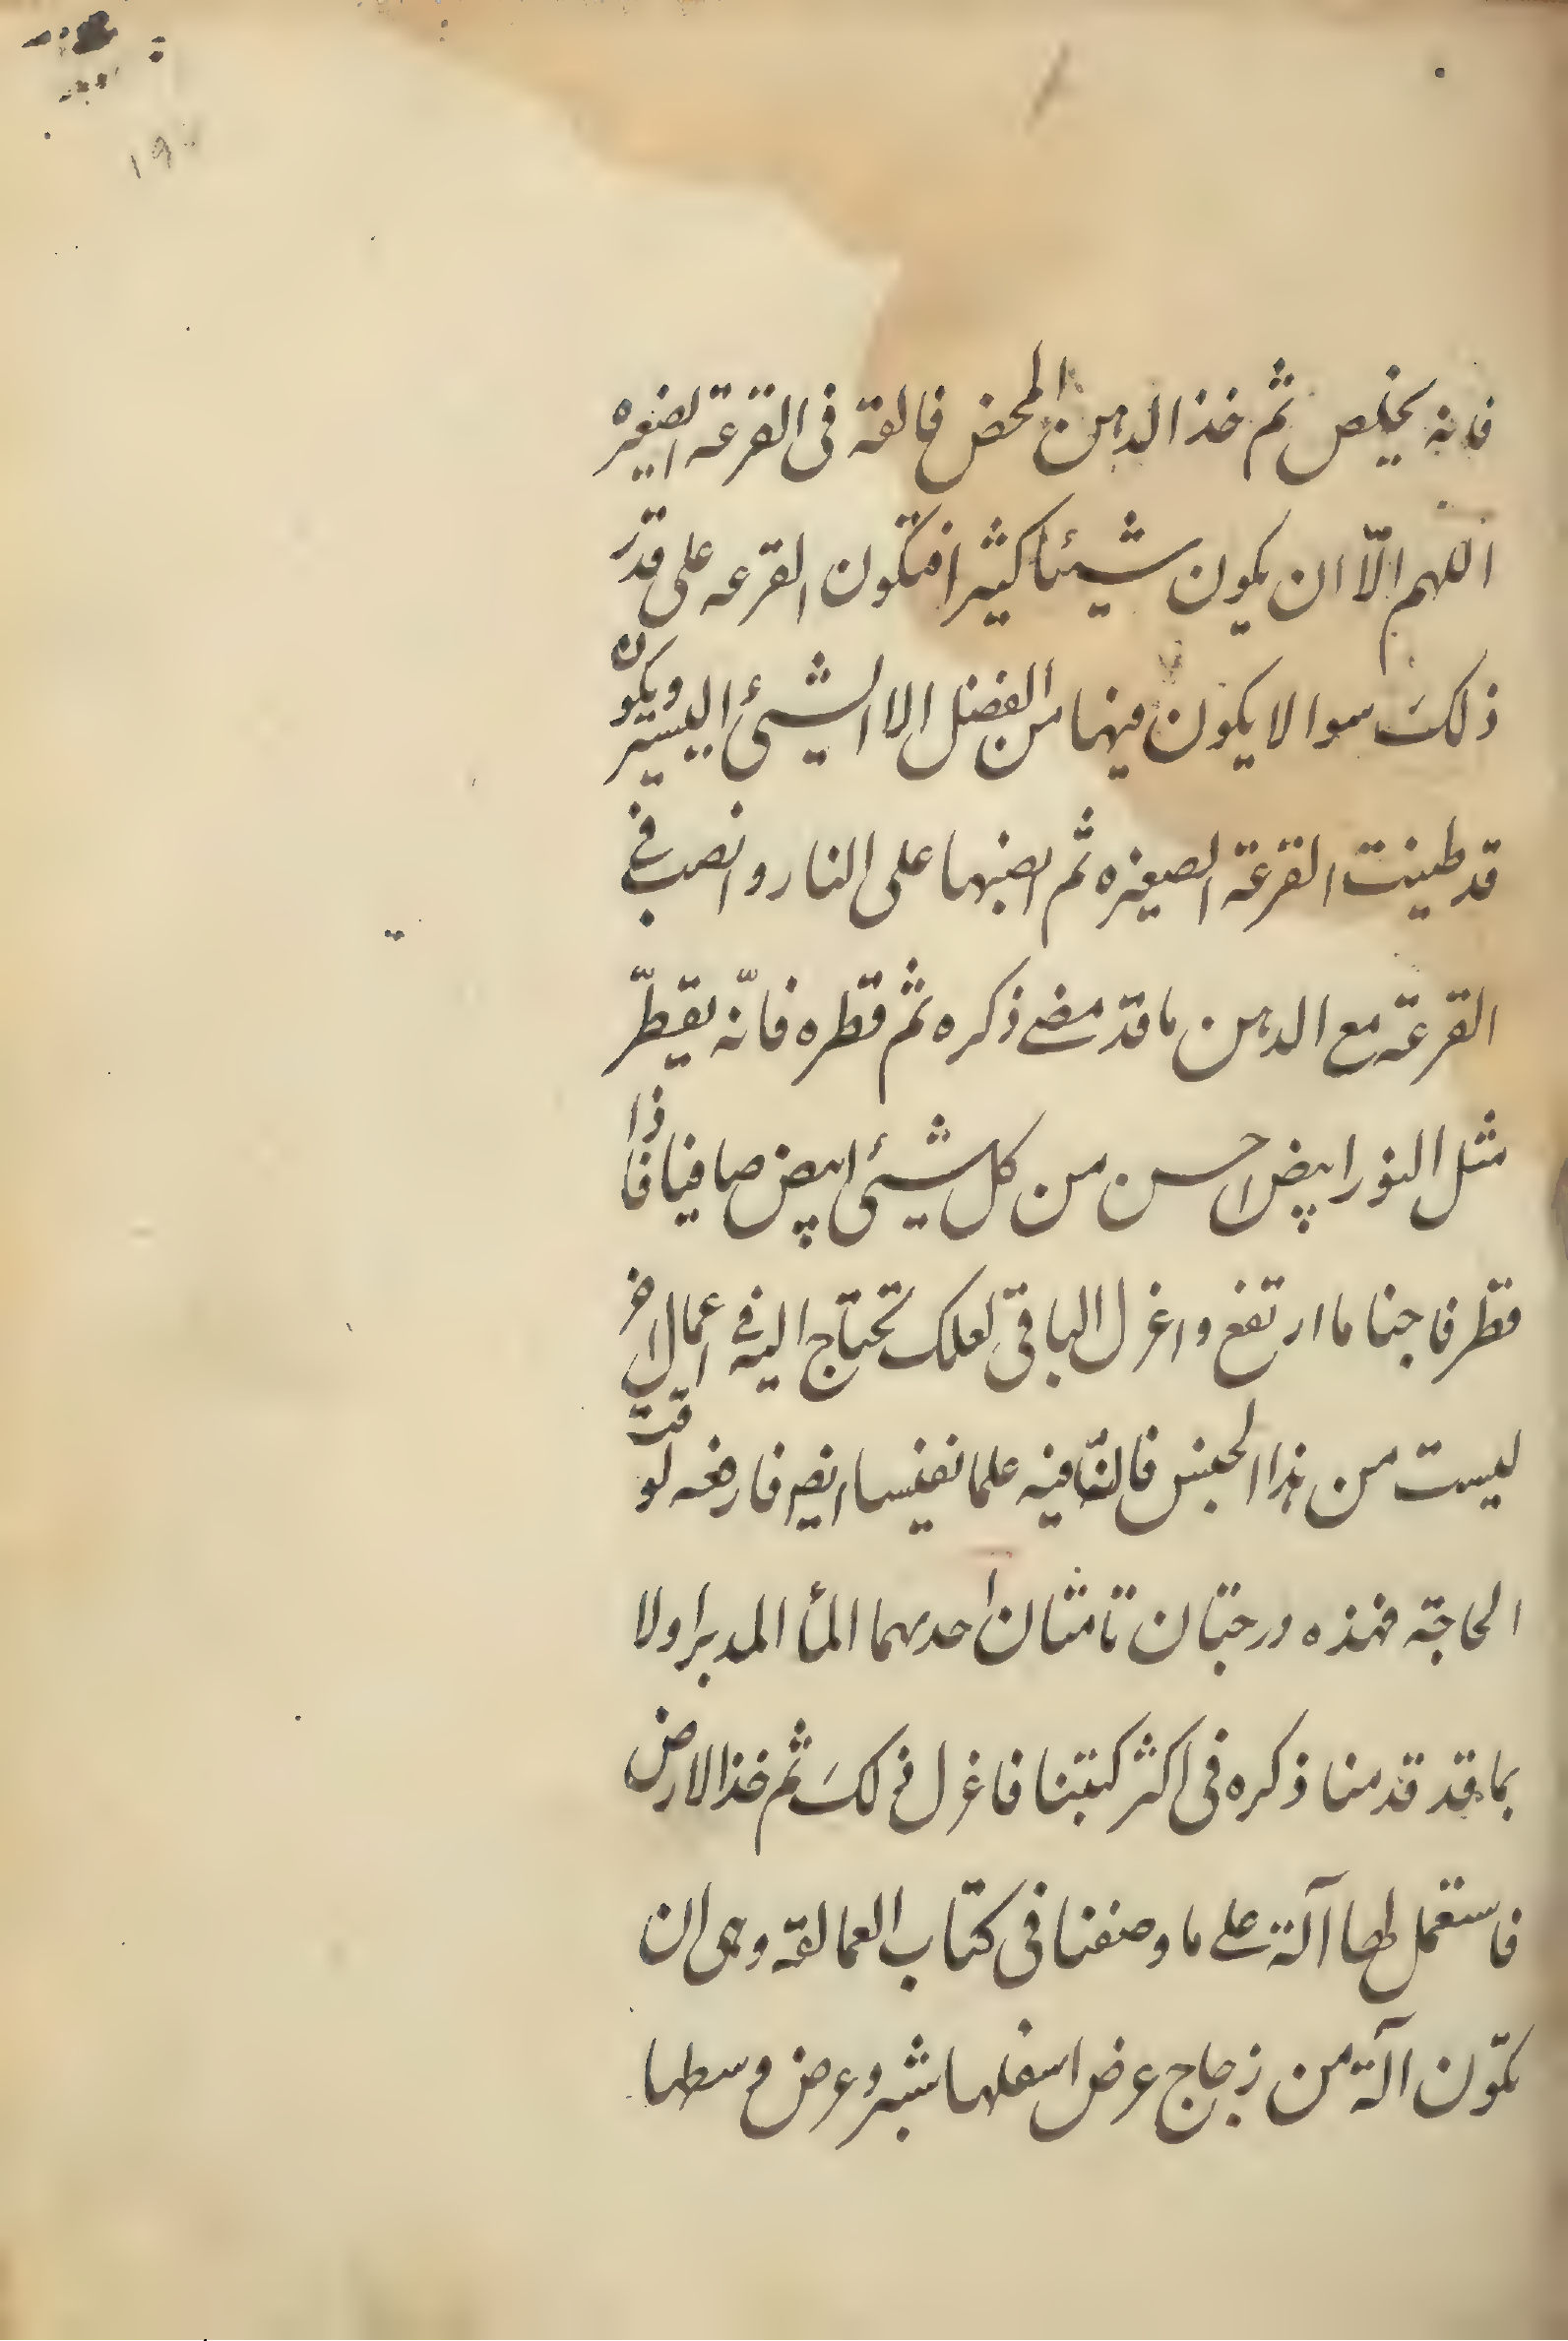 ١٩
فانه يخلص ثم خذ الدهن المحض فالقه فى القرعة الصغيره
اللهم الّا ان يكون شيئا كثيرا فتكون القرعه على قدر
ذلك سوا لا يكون فيها من الفضل الا الشيئ اليسير ويكون
قد طينت القرعة الصغيره ثم انصبها على النار وانصب فى
القرعة مع الدهن ما قد مضى ذكره ثم قطره فانّه يقطّر
مثل النور ابيض احسن من كل شيئ ابيض صافيا فاذا
قطر فاجنا ما ارتفع واعزل الباقى لعلك تحتاج اليه فى اعمال اخر
ليست من هذا الجنس فان لنا فيه علما نفيسا ايضا فارفعه لوقت
الحاجة فهذه درجتان تامتان احديهما المأ المدبر اولا
بما قد قدمنا ذكره فى اكثر كتبنا فاعزل ذلك ثم خذ الارض
فاستعمل لها آلة على ما وصفنا فى كتاب العمالقة وهى ان
تكون آلة من زجاج عرض اسفلها شبر وعرض وسطها